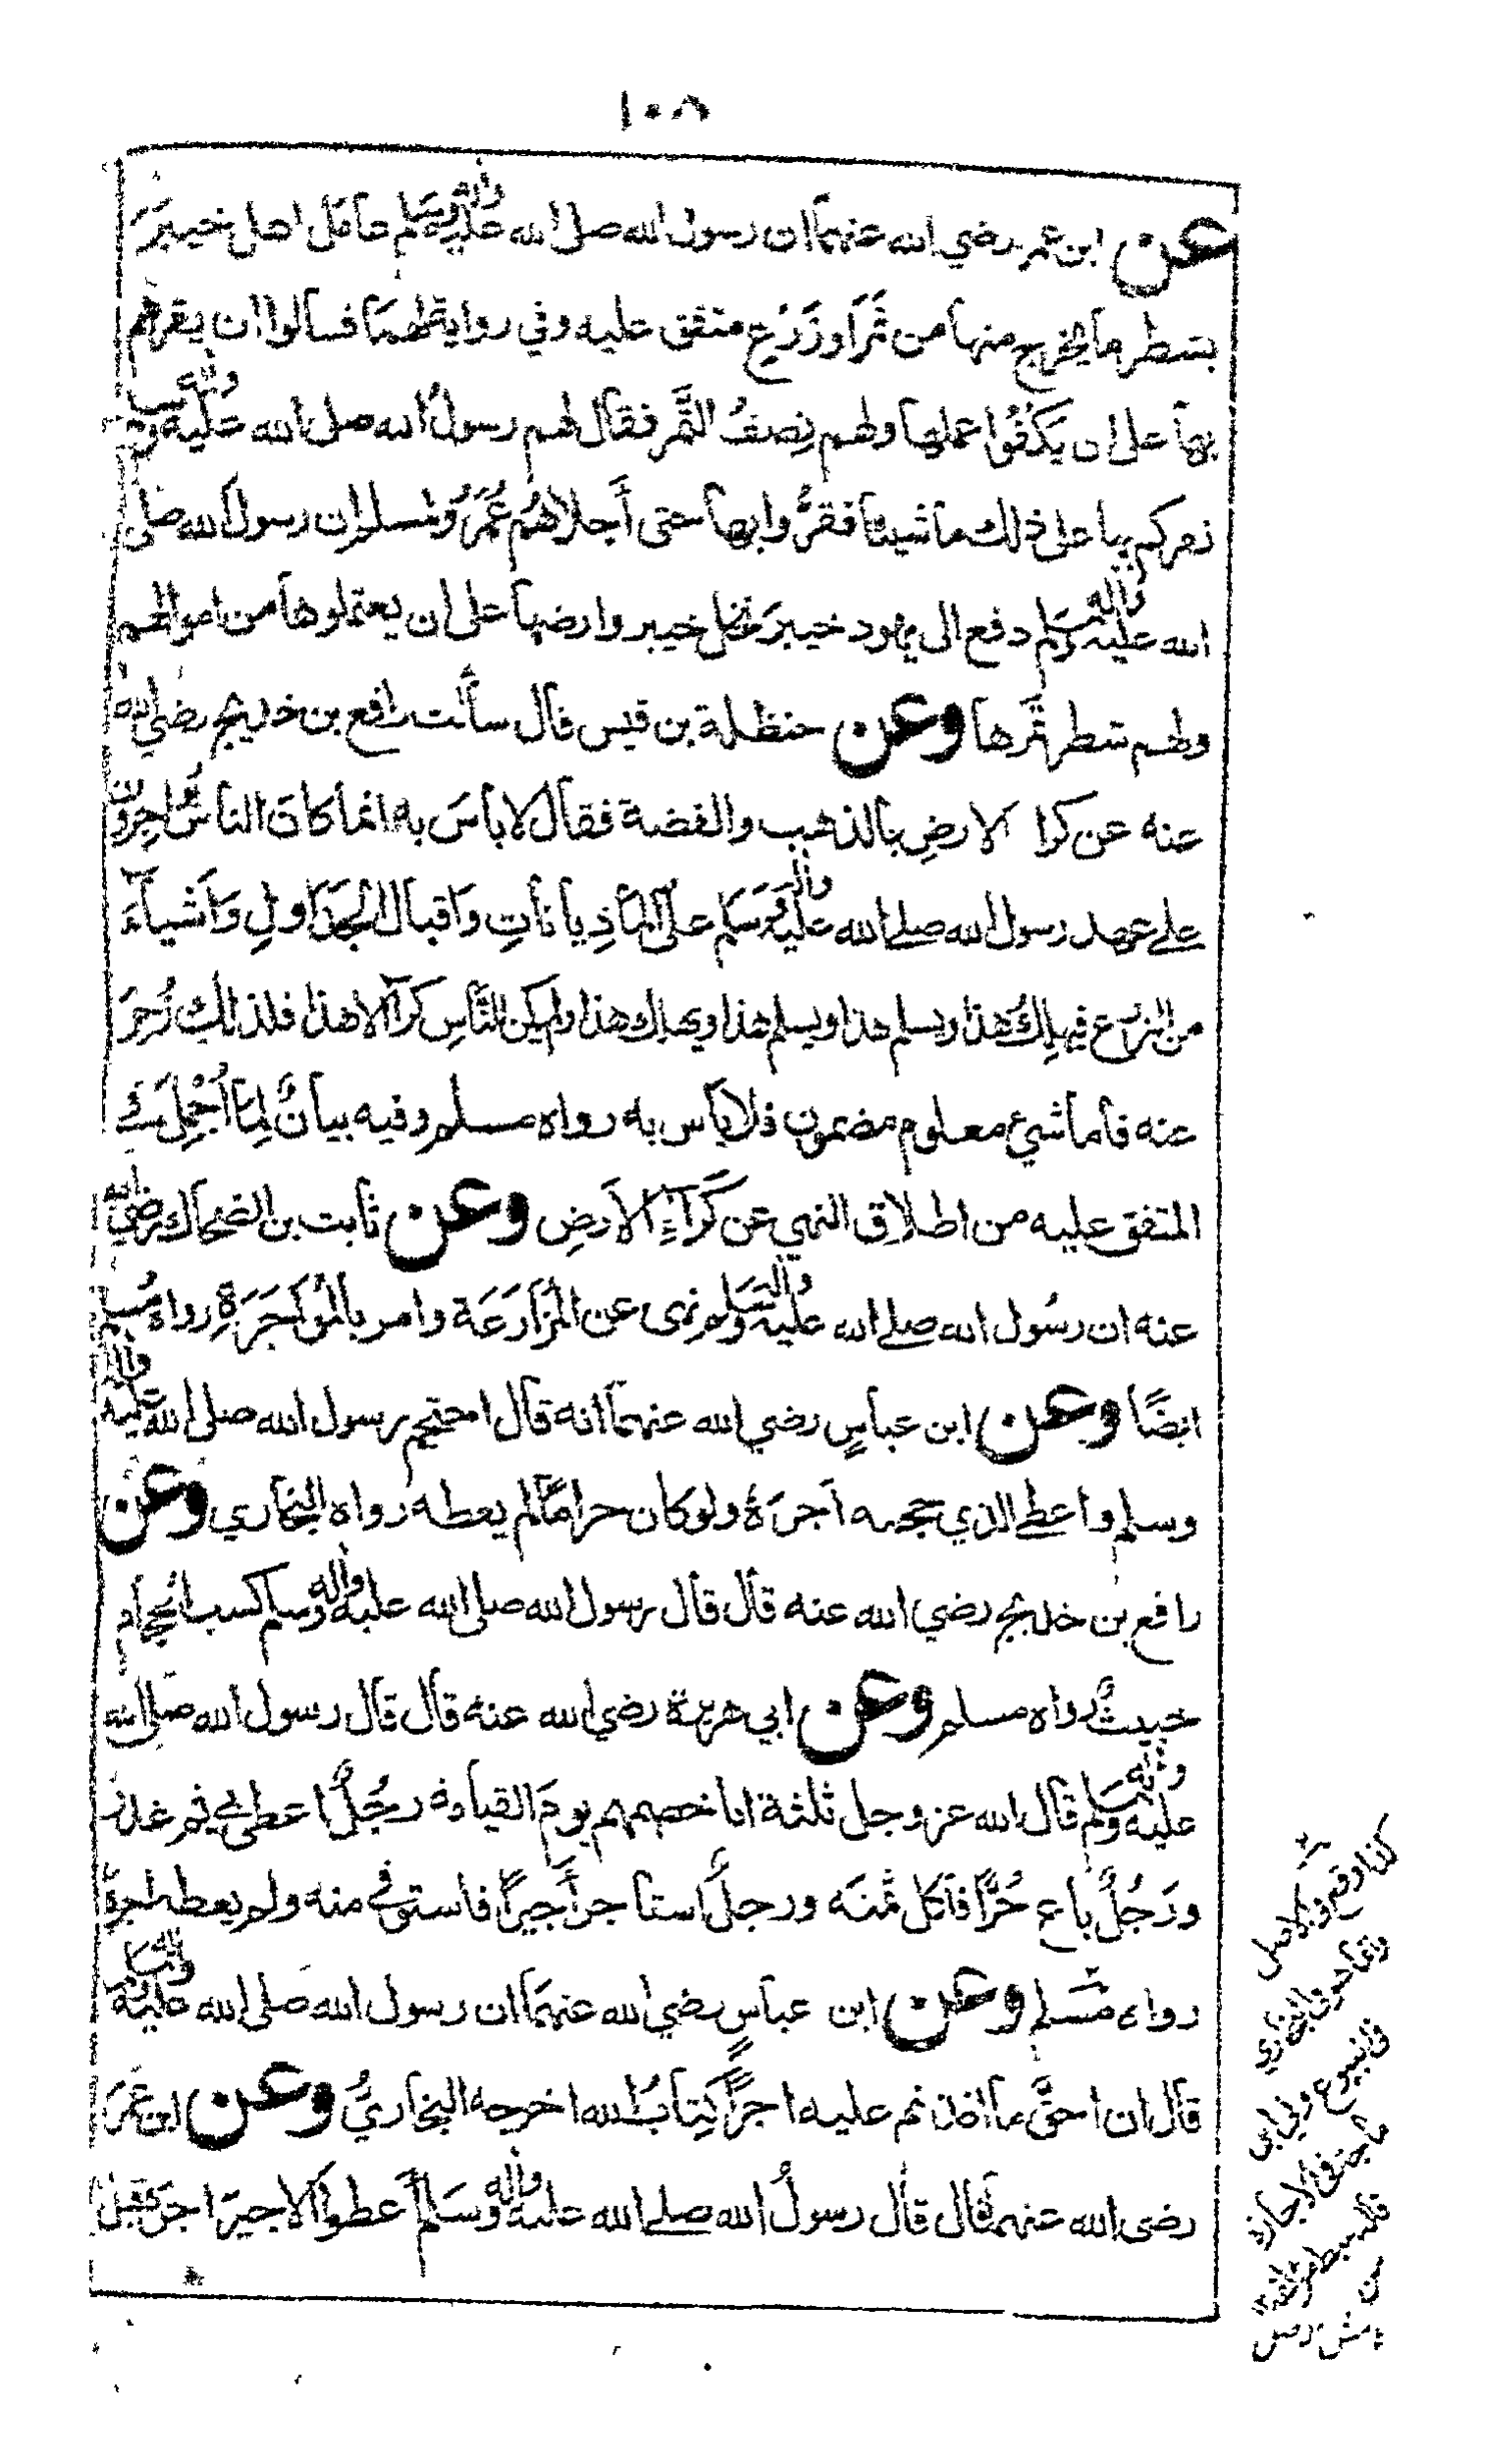 ١٠٨
عن ابن عمر رضي الله عنهما ان رسول الله صلى الله عليه واله وسلم عامل اهل خيبرَ
بشطر ما يخرج منها من ثَمَر او زَرْعٍ متفق عليه وفي رواية لهما فسالوا ان يقرهم
بها على ان يَكْفُوا عملها ولهم نِصفُ الثَّمر فقال لهم رسولُ الله صلى الله عليه واله وسلم
نقركم بها على ذلك ما شيئنا فقَرُّوا بها حتى أَجلاهُم عُمَرُ ولمسلم ان رسول الله صلى
الله عليه واله وسلم دفع الى يهود خيبرَ نخل خيبر وارضها على ان يعتملوها من اموالهم
ولهم شطر ثَمَرها وعن حنظلة بن قيس قال سألت رافع بن خديج رضي الله
عنه عن كرا الارضِ بالذهب والفضة فقال لا باسَ به انما كان الناسُ يُواجِرُون
على عهد رسول الله صلى الله عليه واله وسلم على المَاذِيانَاتِ وَاَقبال الجَدَاوِلِ وَاَشياءَ
من الزرع فيهلِكُ هذا ويسلم هذا ويسلم هذا ويهلك هذا ولم يكن للنَّاسِ كراءٌ الا هذا فلذالك زُجِرَ
عنه فاما شيء معلوم مضمون فلا باس به رواه مسلم وفيه بيانٌ لِمَا اُجْمِلَ في
المتفق عليه من اطلاق النهي عن كَرَآءِ الاَرضِ وعن ثابت بن الضحاك رضي الله
عنه ان رسُول الله صلى الله عليه واله وسلم نهى عن المُزَارَعَة وامر بالمُؤَاجَرَةِ رواه مُسلم
ايضًا وعن ابن عباسٍ رضي الله عنهما انه قال احتجم رسول الله صلى الله عليه واله
وسلم واعطى الذي حجمه اَجرَهُ ولو كان حرامًا لم يعطه رواه البخاري وعن
رافع بن خديج رضي الله عنه قال قال رسول الله صلى الله عليه واله وسلم كسب الحجام
خبيثٌ رواه مسلم وعن ابي هريرة رضي الله عنه قال قال رسول الله صلى الله
عليه واله وسلم قال الله عز وجل ثلثة انا خصمهم يومَ القيامة رجُلٌ اعطى بي ثم غدر
ورَجُلٌ باع حُرًّا فَاَكل ثَمنَه ورجلٌ استاجرَ اَجيرًا فاستوفى منه ولم يعطه اجره
رواه مُسلم وعن ابن عباسٍ رضي الله عنهما ان رسول الله صلى الله عليه واله وسلم
قال ان احقَّ ما اخذتم عليه اجرًا كِتابُ الله اخرجه البخاريُّ وعن ابن عُمَرَ
رضى الله عنهما قال قال رسولُ الله صلى الله عليه واله وسَلم أعطوا الاجيرَ اجرَه قبل
كذا وقع في الاصل
البخاري
في البيوع وفي
الاجارة